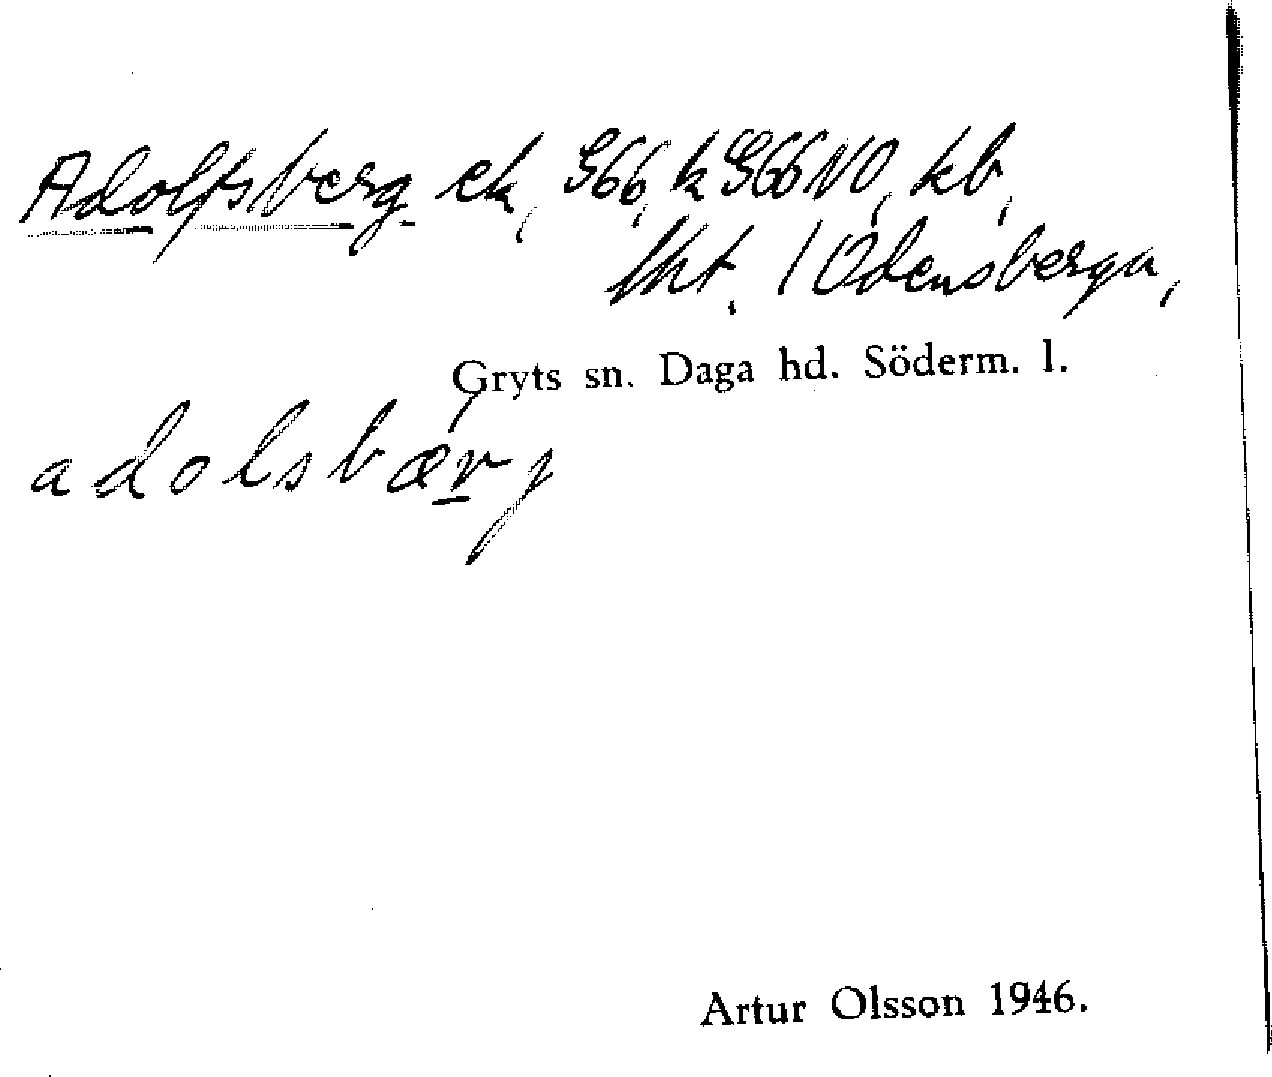 Adolfsberg ek, G66, k G66NO, kb,
tht. 1 Odensberga,
Gryts sn. Daga hd. Söderm. l.
adolsbærj
Artur Olsson 1946.